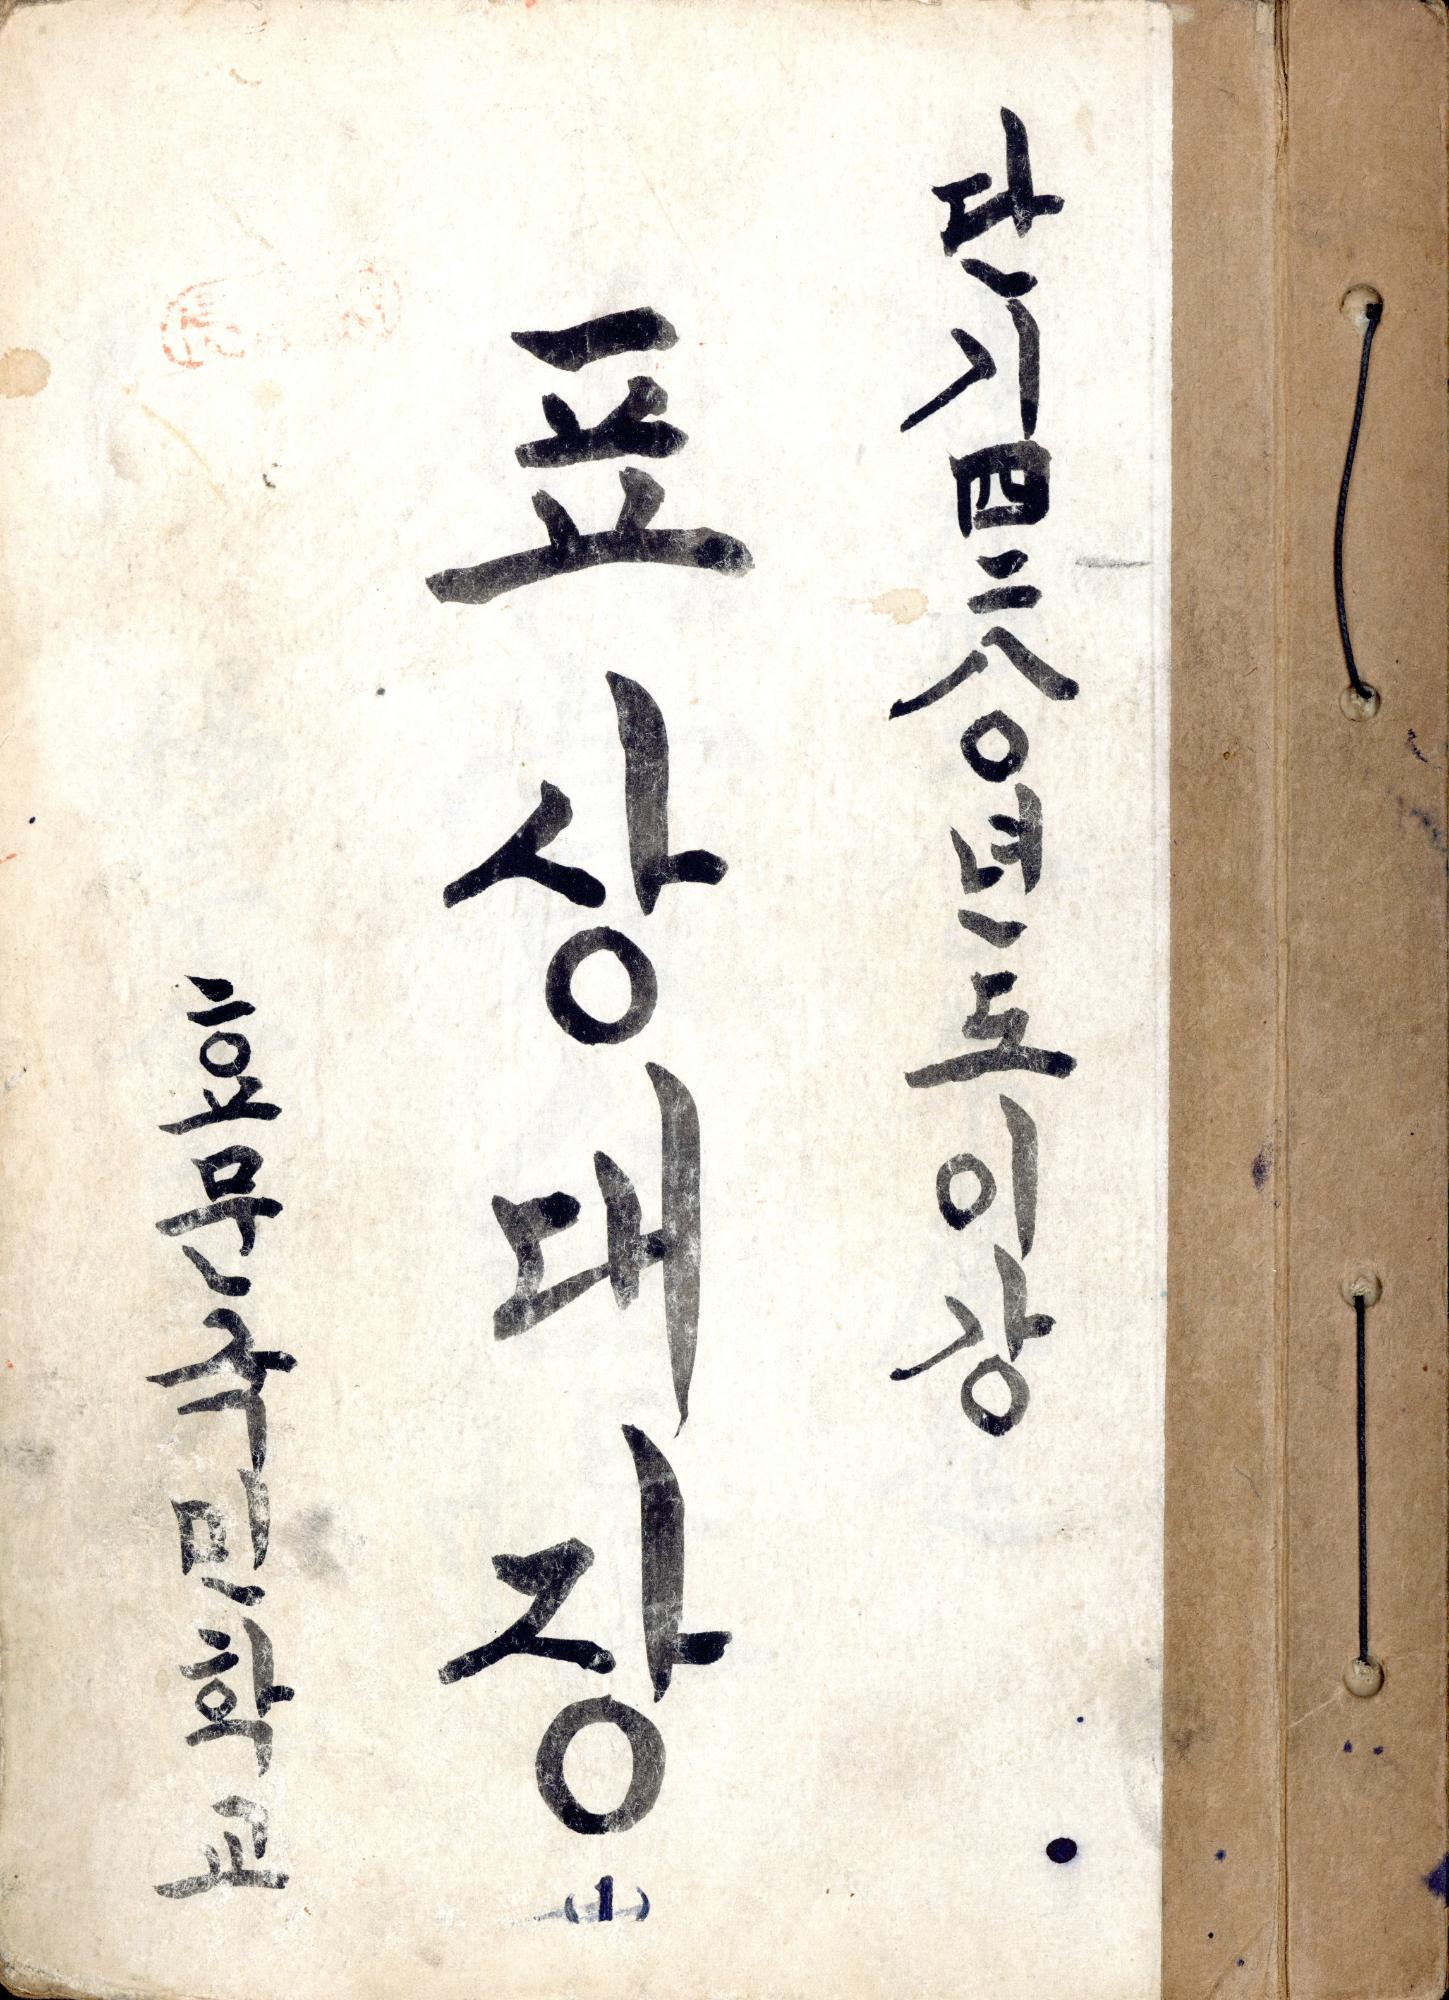 단기四二八〇년도이강
표상대장
(1)
효문국민학교